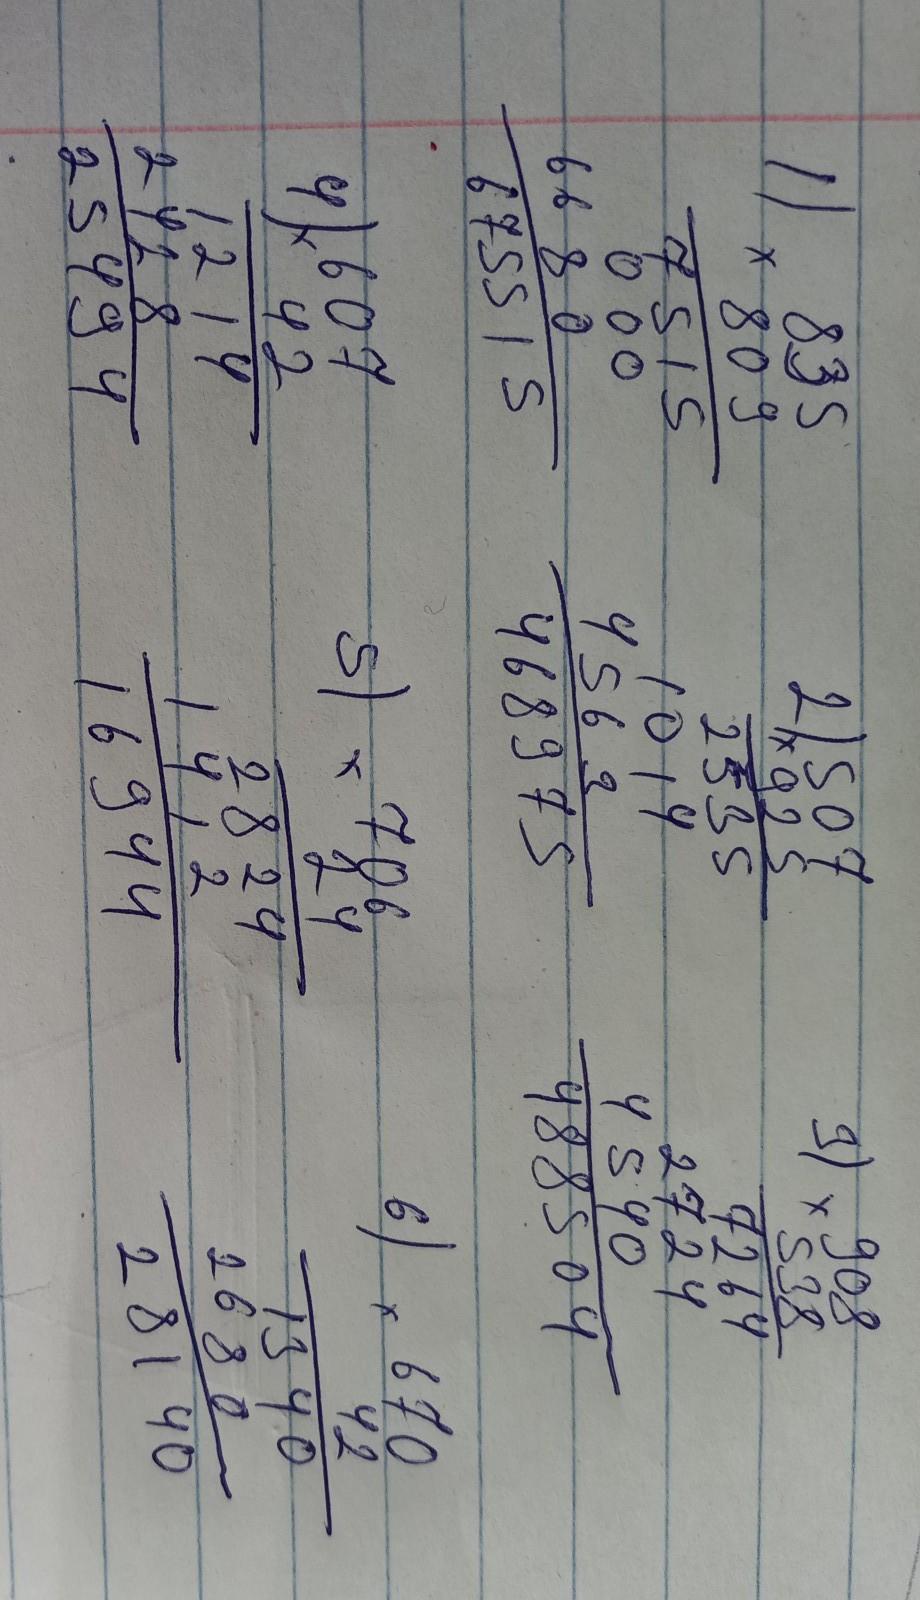 1) 835
× 809
7515
000
6680
675515
2) 507
× 925
2535
1014
4563
468975
3) 908
× 538
7264
2724
4540
488504
4) 607
× 42
1214
2428
25494
5) × 706
24
2824
1412
16944
6) × 670
42
1340
2680
28140